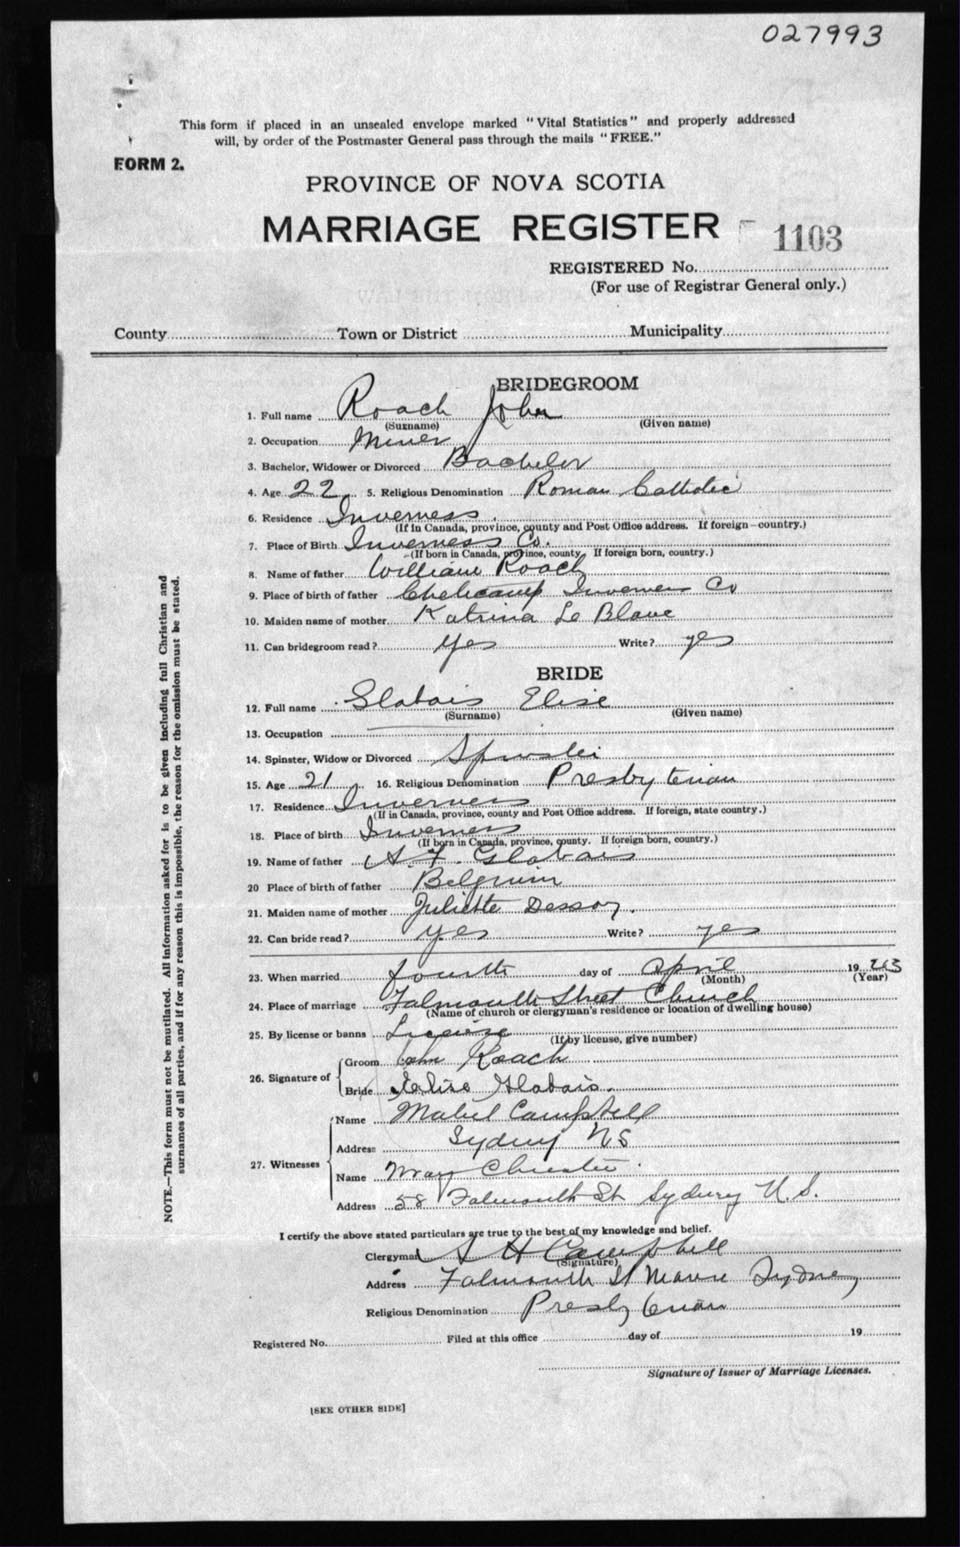 027993
This form if placed in an unsealed envelope marked "Vital Statistics" and properly addressed
will, by order of the Postmaster General pass through the mails "FREE."
FORM 2.
PROVINCE OF NOVA SCOTIA
MARRIAGE REGISTER
1103
REGISTERED No.
(For use of Registrar General only.)
County Town or District Municipality
BRIDEGROOM
1. Full name Roach John
(Surname) (Given name)
2. Occupation Miner
3. Bachelor, Widower or Divorced Bachelor
4. Age 22 5. Religious Denomination Roman Catholic
6. Residence Inverness
(If in Canada, province, county and Post Office address. If foreign—country.)
7. Place of Birth Inverness Co.
(If born in Canada, province, county, If foreign born, country.)
8. Name of father William Roach
9. Place of birth of father Cheticamp Inverness Co
10. Maiden name of mother Katrina Le Blanc
11. Can bridegroom read? Yes Write? yes
BRIDE
12. Full name Glabais Elise
(Surname) (Given name)
13. Occupation
14. Spinster, Widow or Divorced Spinster
15. Age 21 16. Religious Denomination Presbyterian
17. Residence Inverness
(If in Canada, province, county and Post Office address. If foreign, state country.)
18. Place of birth Inverness
(If born in Canada, province, county. If foreign born, country.)
19. Name of father A. F. Glabais
20 Place of birth of father Belgium
21. Maiden name of mother Juliette Dessoy.
22. Can bride read? yes Write? yes
23. When married fourth day of April 1923
(Month) (Year)
24. Place of marriage Falmouth Street Church
(Name of church or clergyman's residence or location of dwelling house)
25. By license or banns License
(If by license, give number)
26. Signature of Groom John Roach
Bride Elise Glabais.
27. Witnesses Name Mabel Campbell
Address Sydney NS
Name Christie
Address 58 Falmouth St Sydney N.S.
I certify the above stated particulars are true to the best of my knowledge and belief.
Clergyman S H Campbell
(Signature)
Address Falmouth St Manse Sydney
Religious Denomination Presbyterian
Registered No. Filed at this office day of 19
Signature of Issuer of Marriage Licenses.
[SEE OTHER SIDE]
NOTE.—This form must not be mutilated. All information asked for is to be given including full Christian and
surnames of all parties, and if for any reason this is impossible, the reason for the omission must be stated.